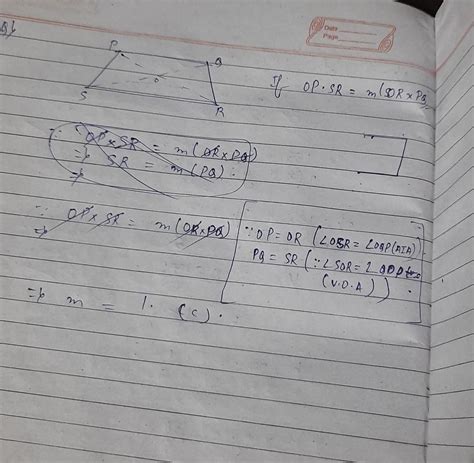 Date
Page
P
Q
O
S
R
If OP·SR = m(OR×PQ
∵ OP×SR = m(OR×PQ)
⇒ SR = m(PQ).
⇒
∵ OP×SR = m(OR×PQ) [∵ OP=OR (∠OSR=∠OQP(AIA)
PQ = SR (∵ ∠SOR=∠
(V.O.A))]
⇒ m = 1. (C).